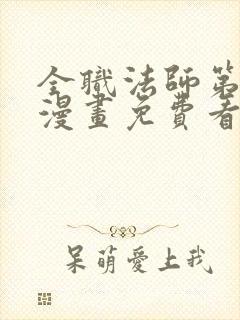 全職法師第
漫畫免費看
呆萌愛上我